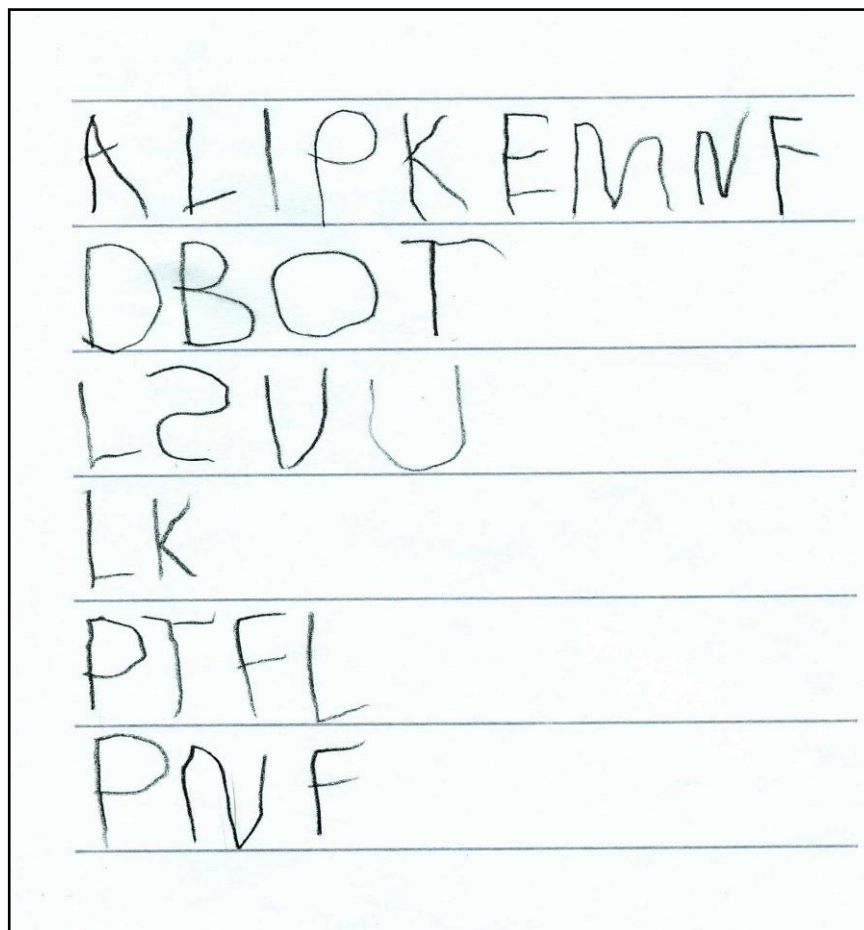 ALIPKEMNF
DBOT
LSVU
LK
PTFL
PNF